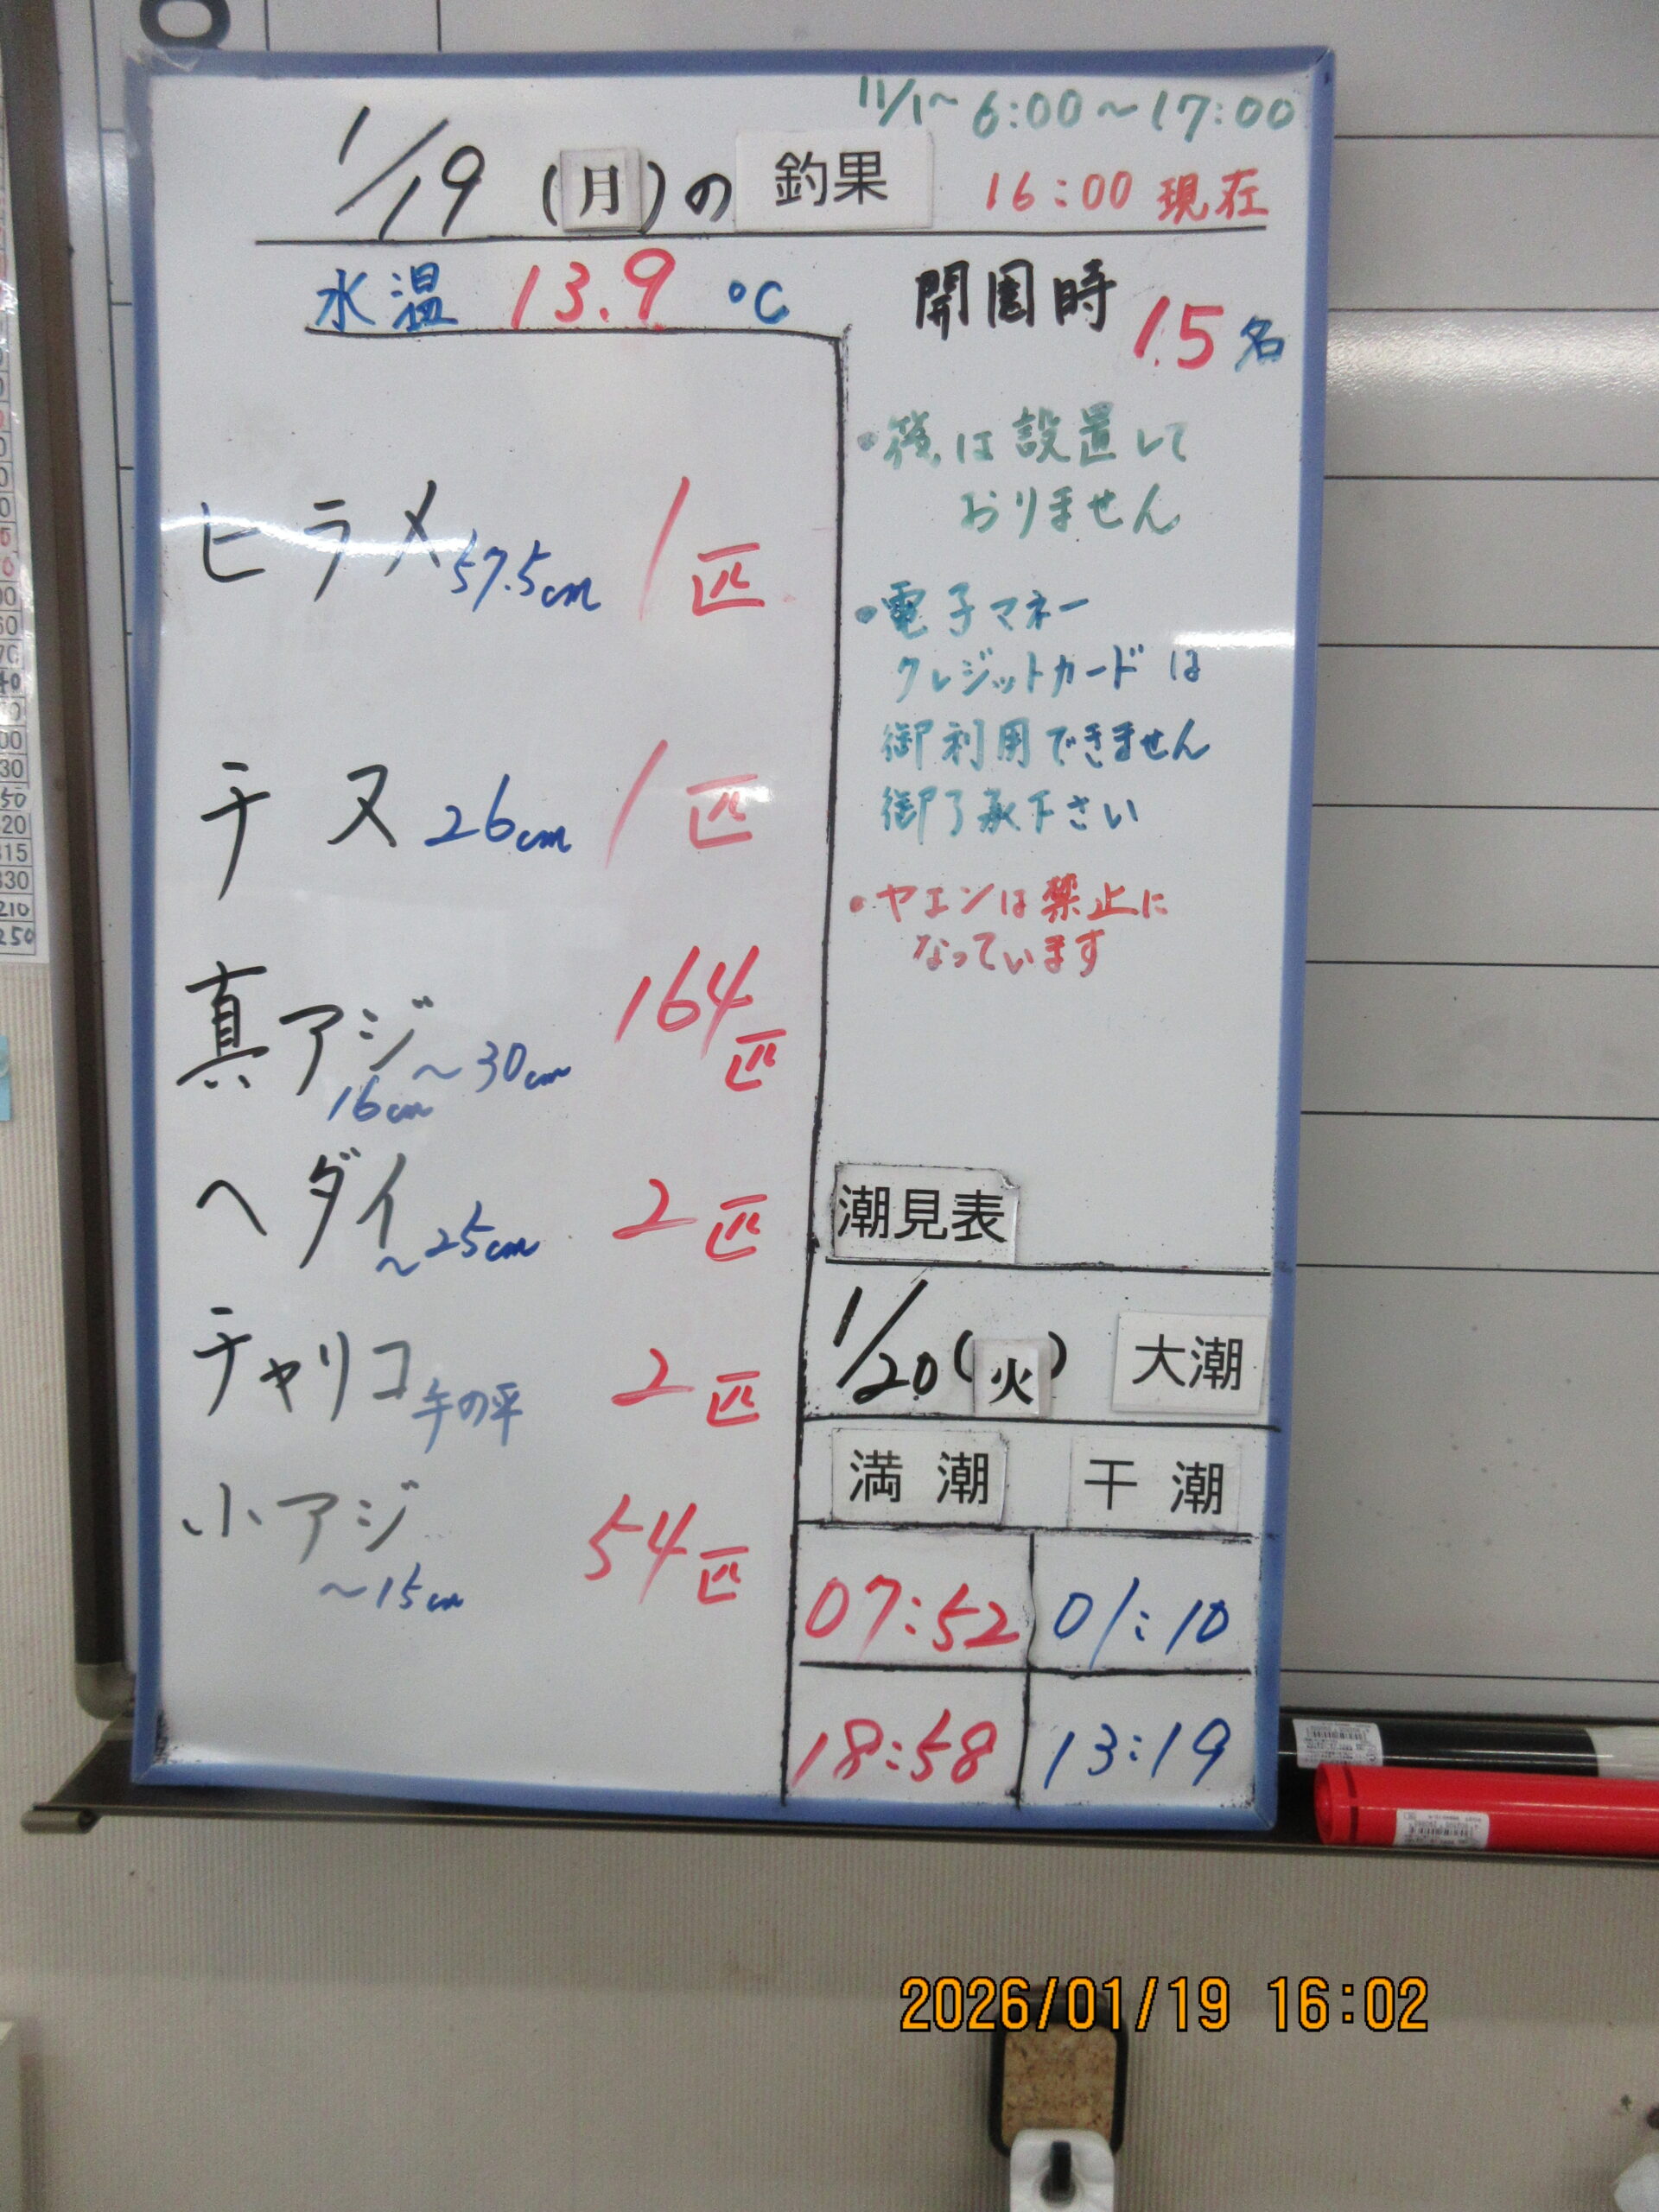 11/1~ 6:00~17:00
1/19 (月)の 釣果 16:00 現在
水温 13.9 ℃
開園時 15名
ヒラメ 57.5cm 1匹
チヌ 26cm 1匹
真アジ 16cm~30cm 164匹
ヘダイ ~25cm 2匹
チャリコ 手の平 2匹
小アジ ~15cm 54匹
は設置して
おりません
・電子マネー
クレジットカードは
御利用できません
御了承下さい
・ヤエンは禁止に
なっています
潮見表
1/20(火) 大潮
満潮 干潮
07:52 01:10
18:58 13:19
2026/01/19 16:02